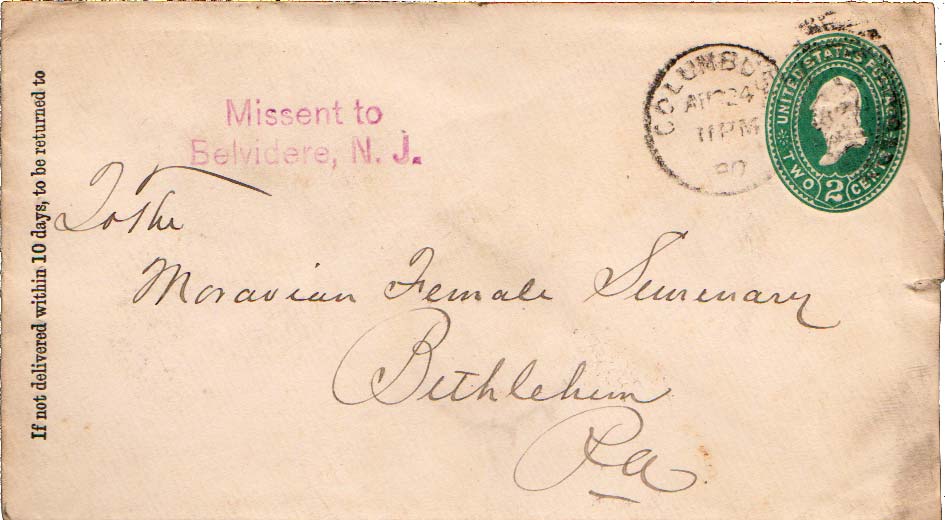 If not delivered within 10 days, to be returned to
Missent to
Belvidere, N. J.
COLUMBUS
AUG 24
11 PM
90
UNITED STATES POSTAGE
TWO 2 CENTS
To the
Moravian Female Semenary
Bethlehem
Pa